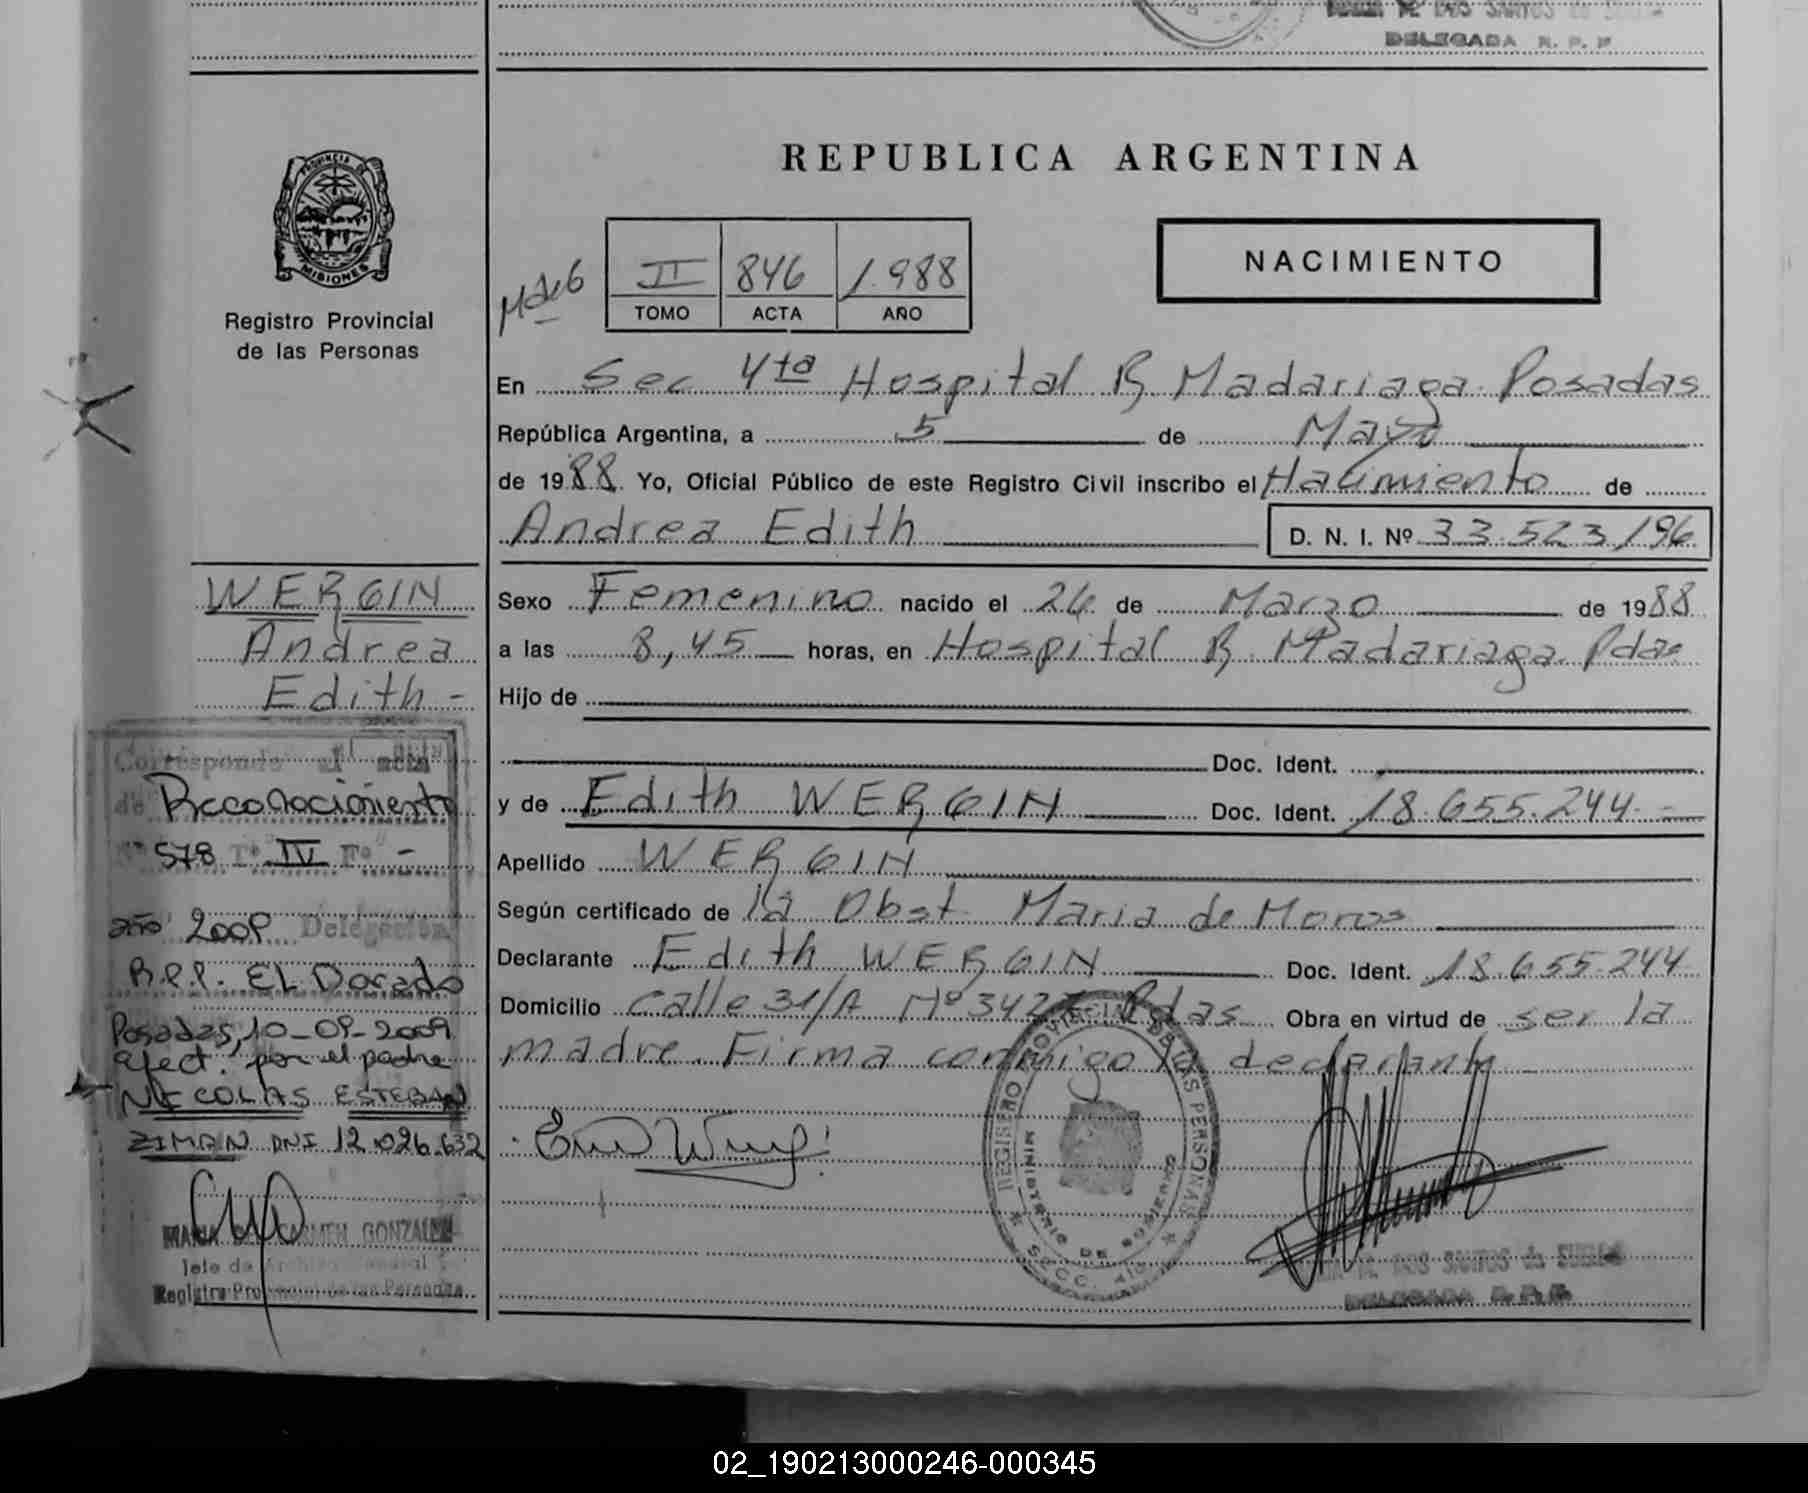 DELEGADA R. P. P.
PROVINCIA DE
MISIONES
Registro Provincial
de las Personas
REPUBLICA ARGENTINA
II 846 1.988
TOMO ACTA AÑO
NACIMIENTO
En Sec 4ta Hospital R Madariaga Posadas
República Argentina, a 5 de Mayo
de 1988. Yo, Oficial Público de este Registro Civil inscribo el Nacimiento de
Andrea Edith D. N. I. Nº 33.523.196
Sexo Femenino nacido el 26 de Marzo de 1988
a las 8,45 horas, en Hospital R. Madariaga Pdas
Hijo de
Doc. Ident.
y de Edith WERGIN Doc. Ident. 18.655.244.-
Apellido WERGIN
Según certificado de la Obst Maria de Moros
Declarante Edith WERGIN Doc. Ident. 18.655.244
Domicilio calle 31/A Nº 3427 Pdas Obra en virtud de ser la
madre. Firma conmigo la declarante
WERGIN
Andrea
Edith -
Corresponde al acta
de Reconocimiento
Nº 578 Tº IV Fº -
año 2009 Delegación
R.P.P. EL Dorado
Posadas, 10-09-2009
efect. por el padre
NICOLAS ESTEBAN
ZIMAN DNI 12.026.632
MARIA DEL CARMEN GONZALEZ
Jefe de Archivo General
Registro Provincial de las Personas
REGISTRO PROVINCIAL DE LAS PERSONAS
MINISTERIO DE GOBIERNO
SECC. 4ta
DOS SANTOS de
DELEGADA R. P. P.
02_190213000246-000345